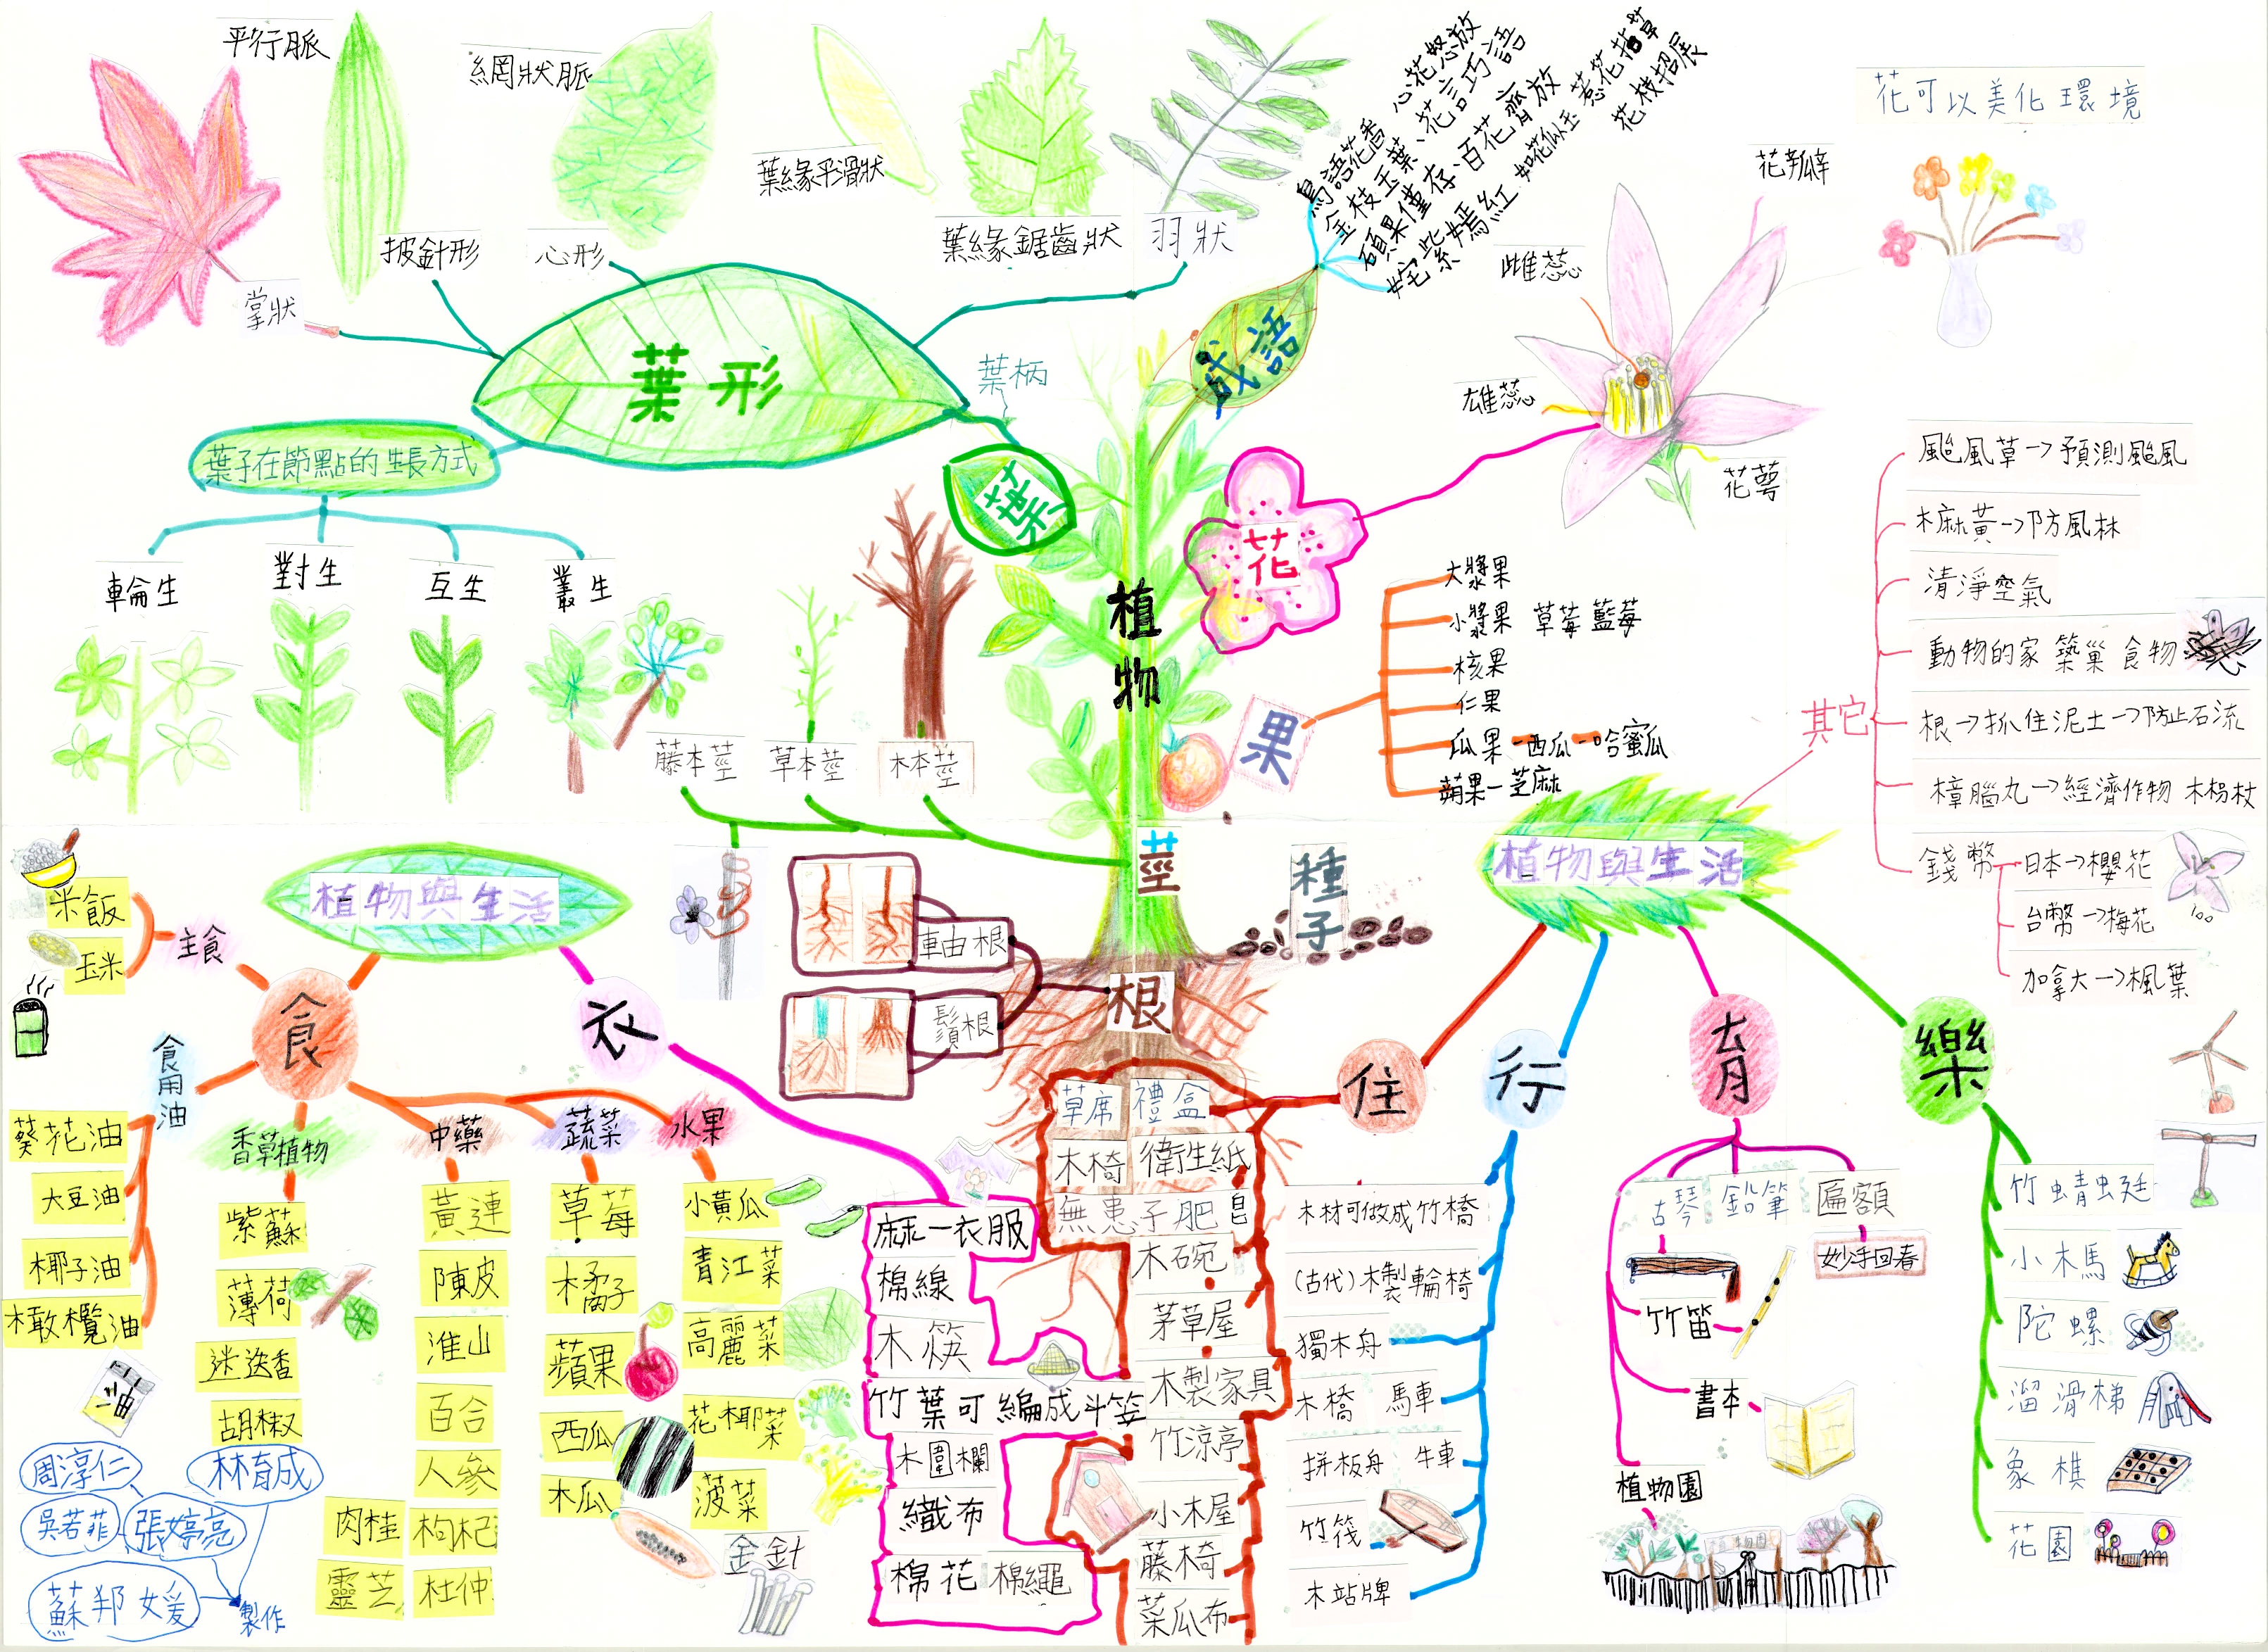 平行脈
網狀脈
葉緣平滑狀
披針形
心形
葉緣鋸齒狀
羽狀
掌狀
葉形
葉柄
葉子在節點的生長方式
輪生
對生
互生
叢生
葉
成語
鳥語花香 心花怒放
金枝玉葉、花言巧語
碩果僅存、百花齊放
奼紫嫣紅 如花似玉 惹花拈草
花枝招展
花可以美化環境
花瓣
雌蕊
雄蕊
花萼
花
植物
果
大漿果
小漿果 草莓 藍莓
核果
仁果
瓜果-西瓜-哈蜜瓜
蒴果-芝麻
藤本莖
草本莖
木本莖
莖
種子
軸根
鬚根
根
其它
颱風草→預測颱風
木麻黃→防風林
清淨空氣
動物的家 築巢 食物
根→抓住泥土→防止石流
樟腦丸→經濟作物 木楊杖
錢幣
日本→櫻花
100
台幣→梅花
加拿大→楓葉
植物與生活
食
主食
米飯
玉米
食用油
葵花油
大豆油
椰子油
橄欖油
油
香草植物
紫蘇
薄荷
迷迭香
胡椒
中藥
黃連
陳皮
淮山
百合
人參
肉桂 枸杞
靈芝 杜仲
蔬菜
草莓
橘子
蘋果
西瓜
木瓜
水果
小黃瓜
青江菜
高麗菜
花椰菜
菠菜
金針
衣
麻-衣服
棉線
木筷
竹葉可編成斗笠
木圍欄
織布
棉花 棉繩
植物與生活
住
草席 禮盒
木椅 衛生紙
無患子肥皂
木碗
茅草屋
木製家具
竹涼亭
小木屋
藤椅
菜瓜布
行
木材可做成竹橋
(古代)木製輪椅
獨木舟
木橋 馬車
拼板舟 牛車
竹筏
木站牌
育
古琴
鉛筆
匾額
妙手回春
竹笛
書本
植物園
樂
竹蜻蜓
小木馬
陀螺
溜滑梯
象棋
花園
周淳仁
林育成
吳若菲
張婷亮
蘇邦媛
製作